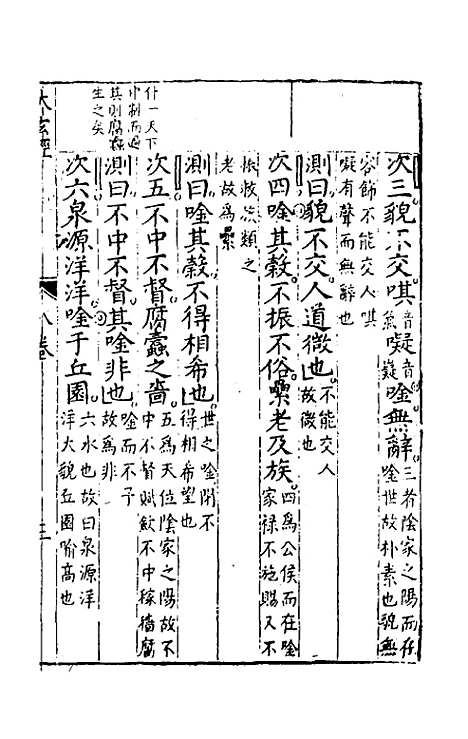 次三貌不交唭音氣㘈音疑唫無辭三者陰家之陽而在
唫世故朴素也貌無
容飾不能交人唭
㘈有聲而無辭也
測曰貌不交人道微也不能交人
故微也
次四唫其榖不振不俗纍老及族四爲公侯而在唫
家祿不施賜又不
振救流類之
老故爲纍
測曰唫其榖不得相希也世之唫閉不
得相希望也
什一天下
中制而過
其則腐蠹
生之矣
次五不中不督腐蠹之嗇五爲天位陰家之陽故不
中不督賦斂不中稼穡腐
測曰不中不督其唫非也唫而不予
故爲非
次六泉源洋洋唫于丘園六水也故曰泉源洋
洋大貌丘園喻高也
太玄經 八卷 三